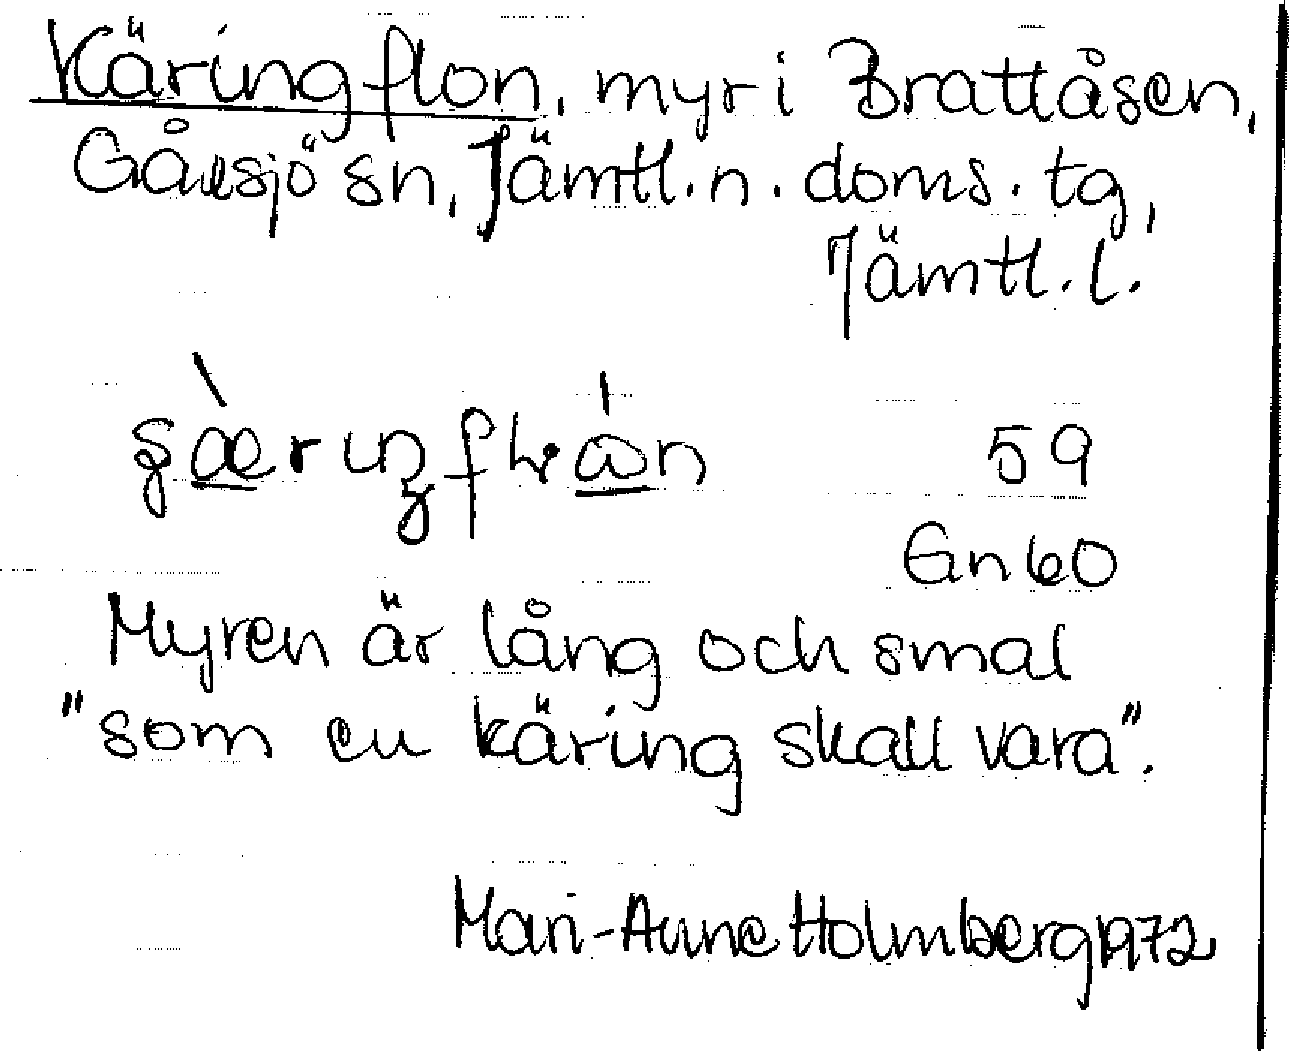 Käringflon, myr i Brattåsen,
Gåxsjö sn, Jämtl. n. doms. tg,
Jämtl. l.
59
Gn 60
Myren är lång och smal
"som en käring skall vara".
Mari-Anne Holmberg 1972